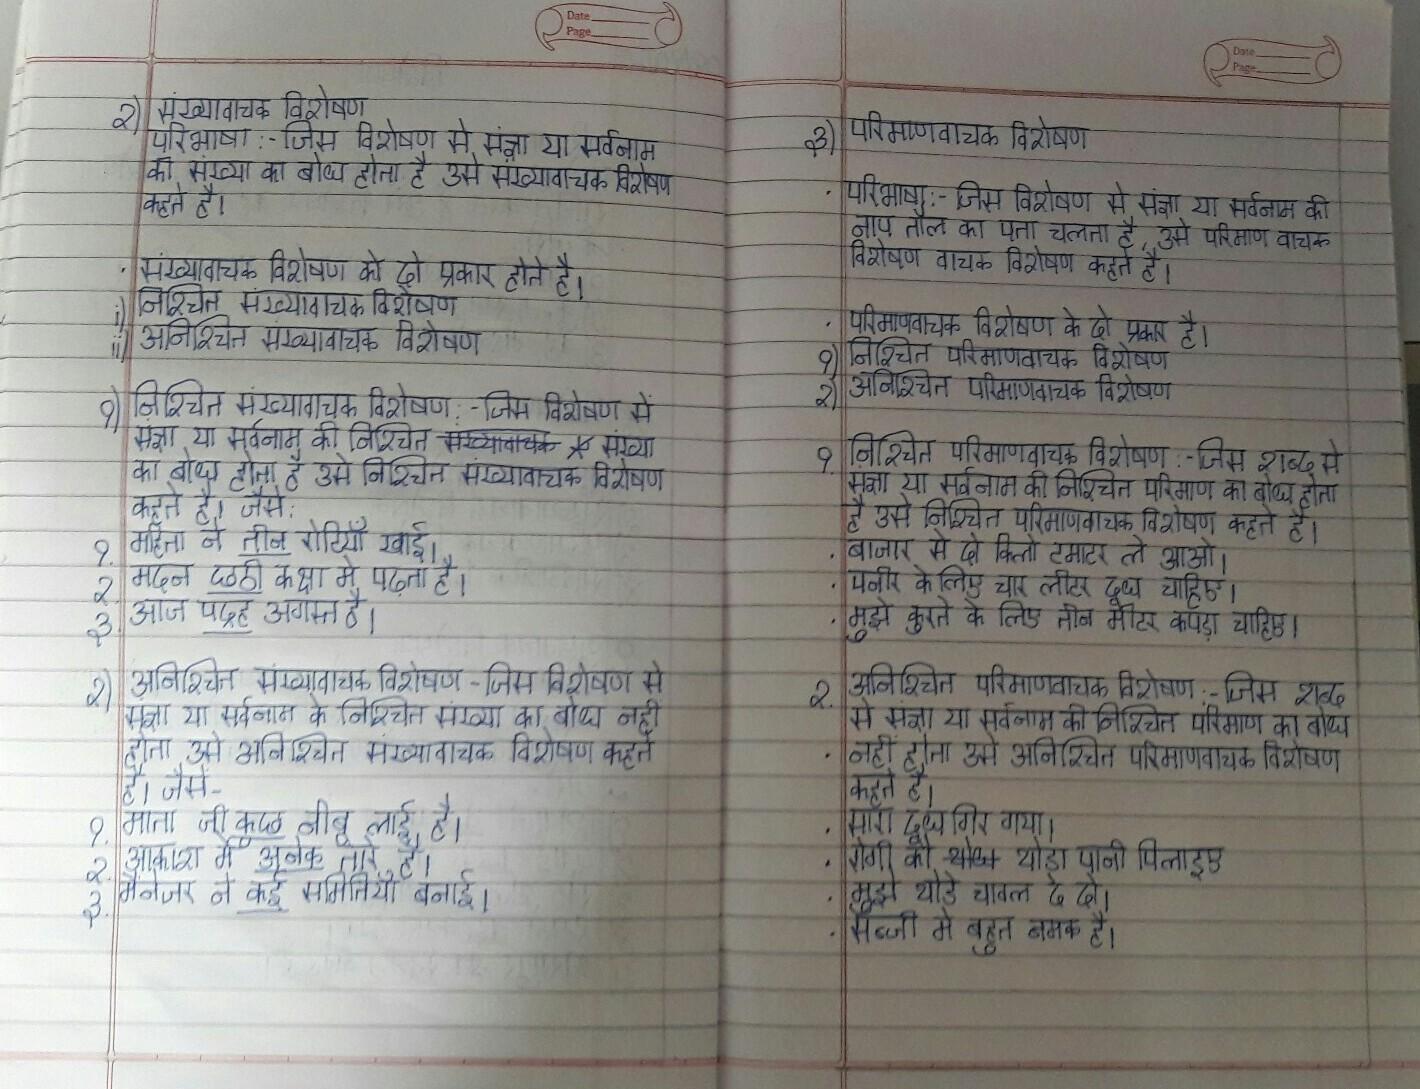 Date
Page
२) संख्यावाचक विशेषण
परिभाषा :- जिस विशेषण से संज्ञा या सर्वनाम
की संख्या का बोध होता है उसे संख्यावाचक विशेषण
कहते है।
· संख्यावाचक विशेषण को दो प्रकार होते है।
i) निश्चित संख्यावाचक विशेषण
ii) अनिश्चित संख्यावाचक विशेषण
१) निश्चित संख्यावाचक विशेषण :- जिस विशेषण से
संज्ञा या सर्वनाम की निश्चित संख्यावाचक संख्या
का बोध होता है उसे निश्चित संख्यावाचक विशेषण
कहते है। जैसे:
१. महिता ने तीन रोटियाँ खाई।
२ मदन छठी कक्षा मे पढ़ता है।
३. आज पद्रह अगस्त है।
२) अनिश्चित संख्यावाचक विशेषण - जिस विशेषण से
संज्ञा या सर्वनाम के निश्चित संख्या का बोध नही
होता उसे अनिश्चित संख्यावाचक विशेषण कहते
है। जैसे-
१. माता जी कुछ नीबू लाई है।
२. आकाश में अनेक तारे है।
३. मैनेजर ने कई समितियाँ बनाई।
Date
Page
३) परिमाणवाचक विशेषण
· परिभाषा:- जिस विशेषण से संज्ञा या सर्वनाम की
नाप तौल का पता चलता है, उसे परिमाण वाचक
विशेषण वाचक विशेषण कहते है।
· परिमाणवाचक विशेषण के दो प्रकार है।
१) निश्चित परिमाणवाचक विशेषण
२) अनिश्चित परिमाणवाचक विशेषण
१. निश्चित परिमाणवाचक विशेषण :- जिस शब्द से
संज्ञा या सर्वनाम की निश्चित परिमाण का बोध होता
है उसे निश्चित परिमाणवाचक विशेषण कहते है।
· बाजार से दो किलो टमाटर ले आओ।
· पनीर के लिए चार लीटर दूध चाहिए।
· मुझे कुरते के लिए तीन मीटर कपड़ा चाहिए।
२. अनिश्चित परिमाणवाचक विशेषण :- जिस शब्द
से संज्ञा या सर्वनाम की निश्चित परिमाण का बोध
· नहीं होता उसे अनिश्चित परिमाणवाचक विशेषण
कहते है।
· सारा दूध गिर गया।
· रोगी को थोड़ा पानी पिलाइए
· मुझे थोडे चावल दे दो।
· सब्जी मे बहुत नमक है।